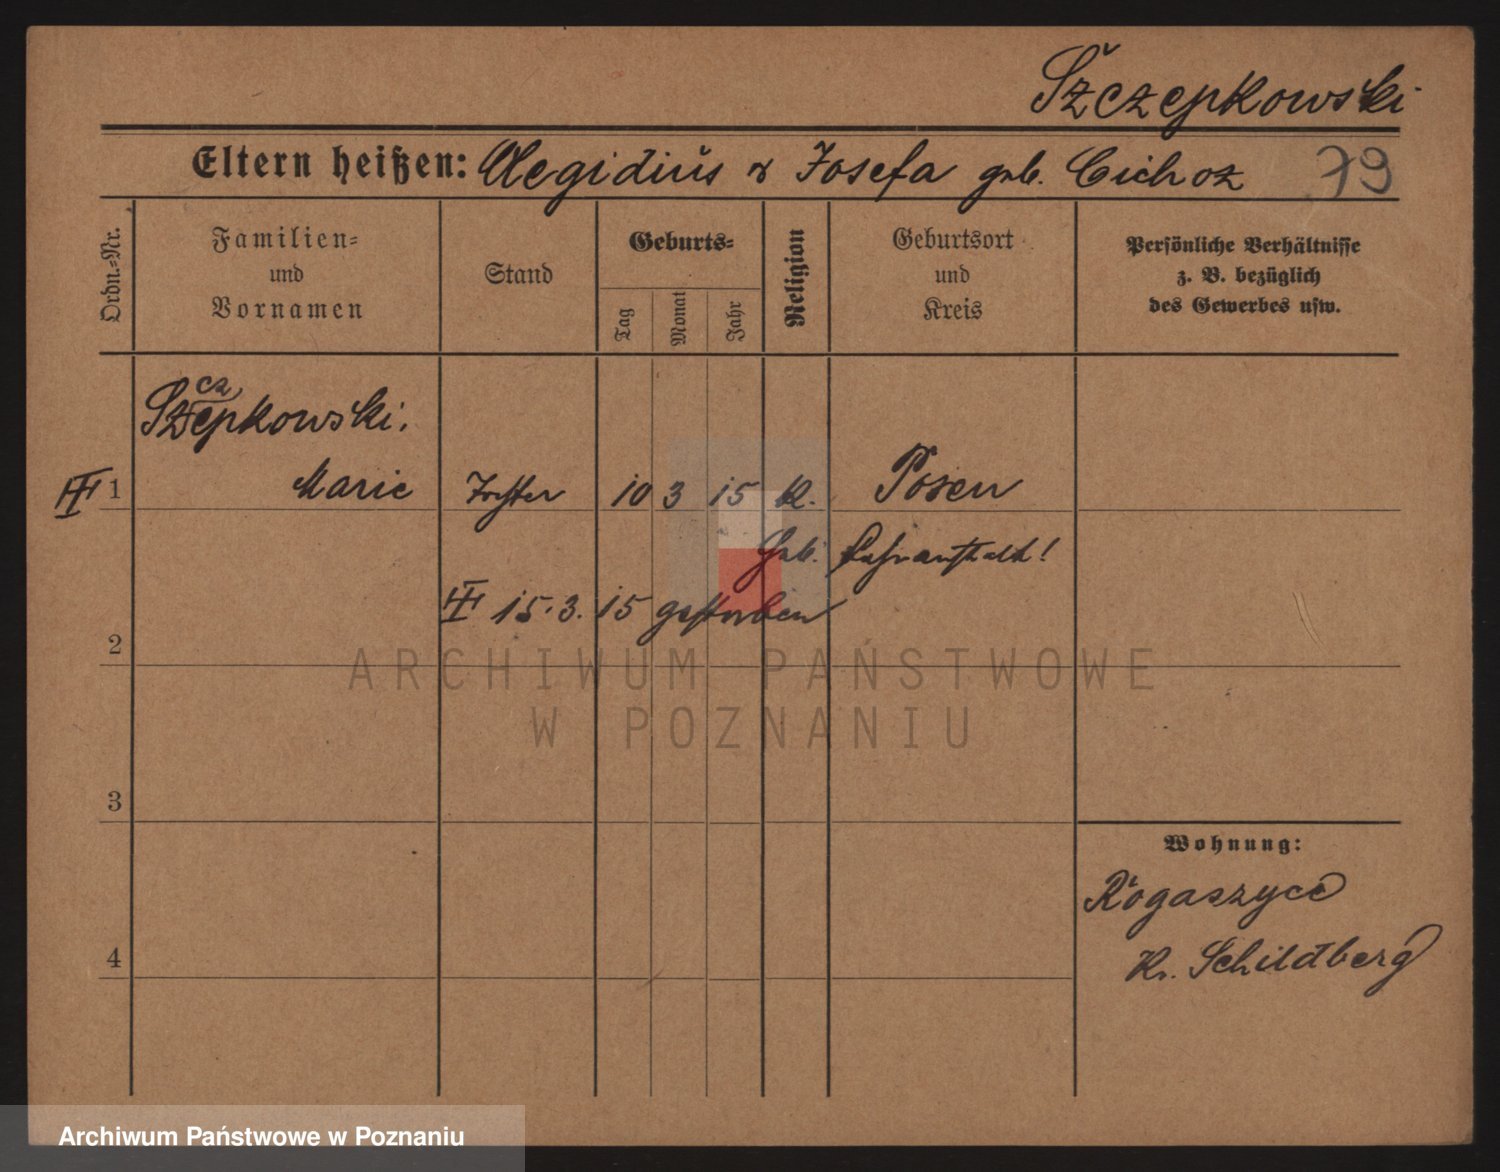 Szczepkowski
Eltern heißen: Aegidius & Josefa geb. Cichoz 79
Ordn.-Nr.
Familien-
und
Vornamen
Stand
Geburts-
Tag
Monat
Jahr
Religion
Geburtsort
und
Kreis
Persönliche Verhältnisse
z. B. bezüglich
des Gewerbes usw.
cz
Szepkowski,
1 Marie Tochter 10 3 15 k. Posen
Geb.
15.3.15 gestorben
2
ARCHIWUM PAŃSTWOWE
W POZNANIU
3
Wohnung:
Rogaszyce
Kr. Schildberg
4
Archiwum Państwowe w Poznaniu